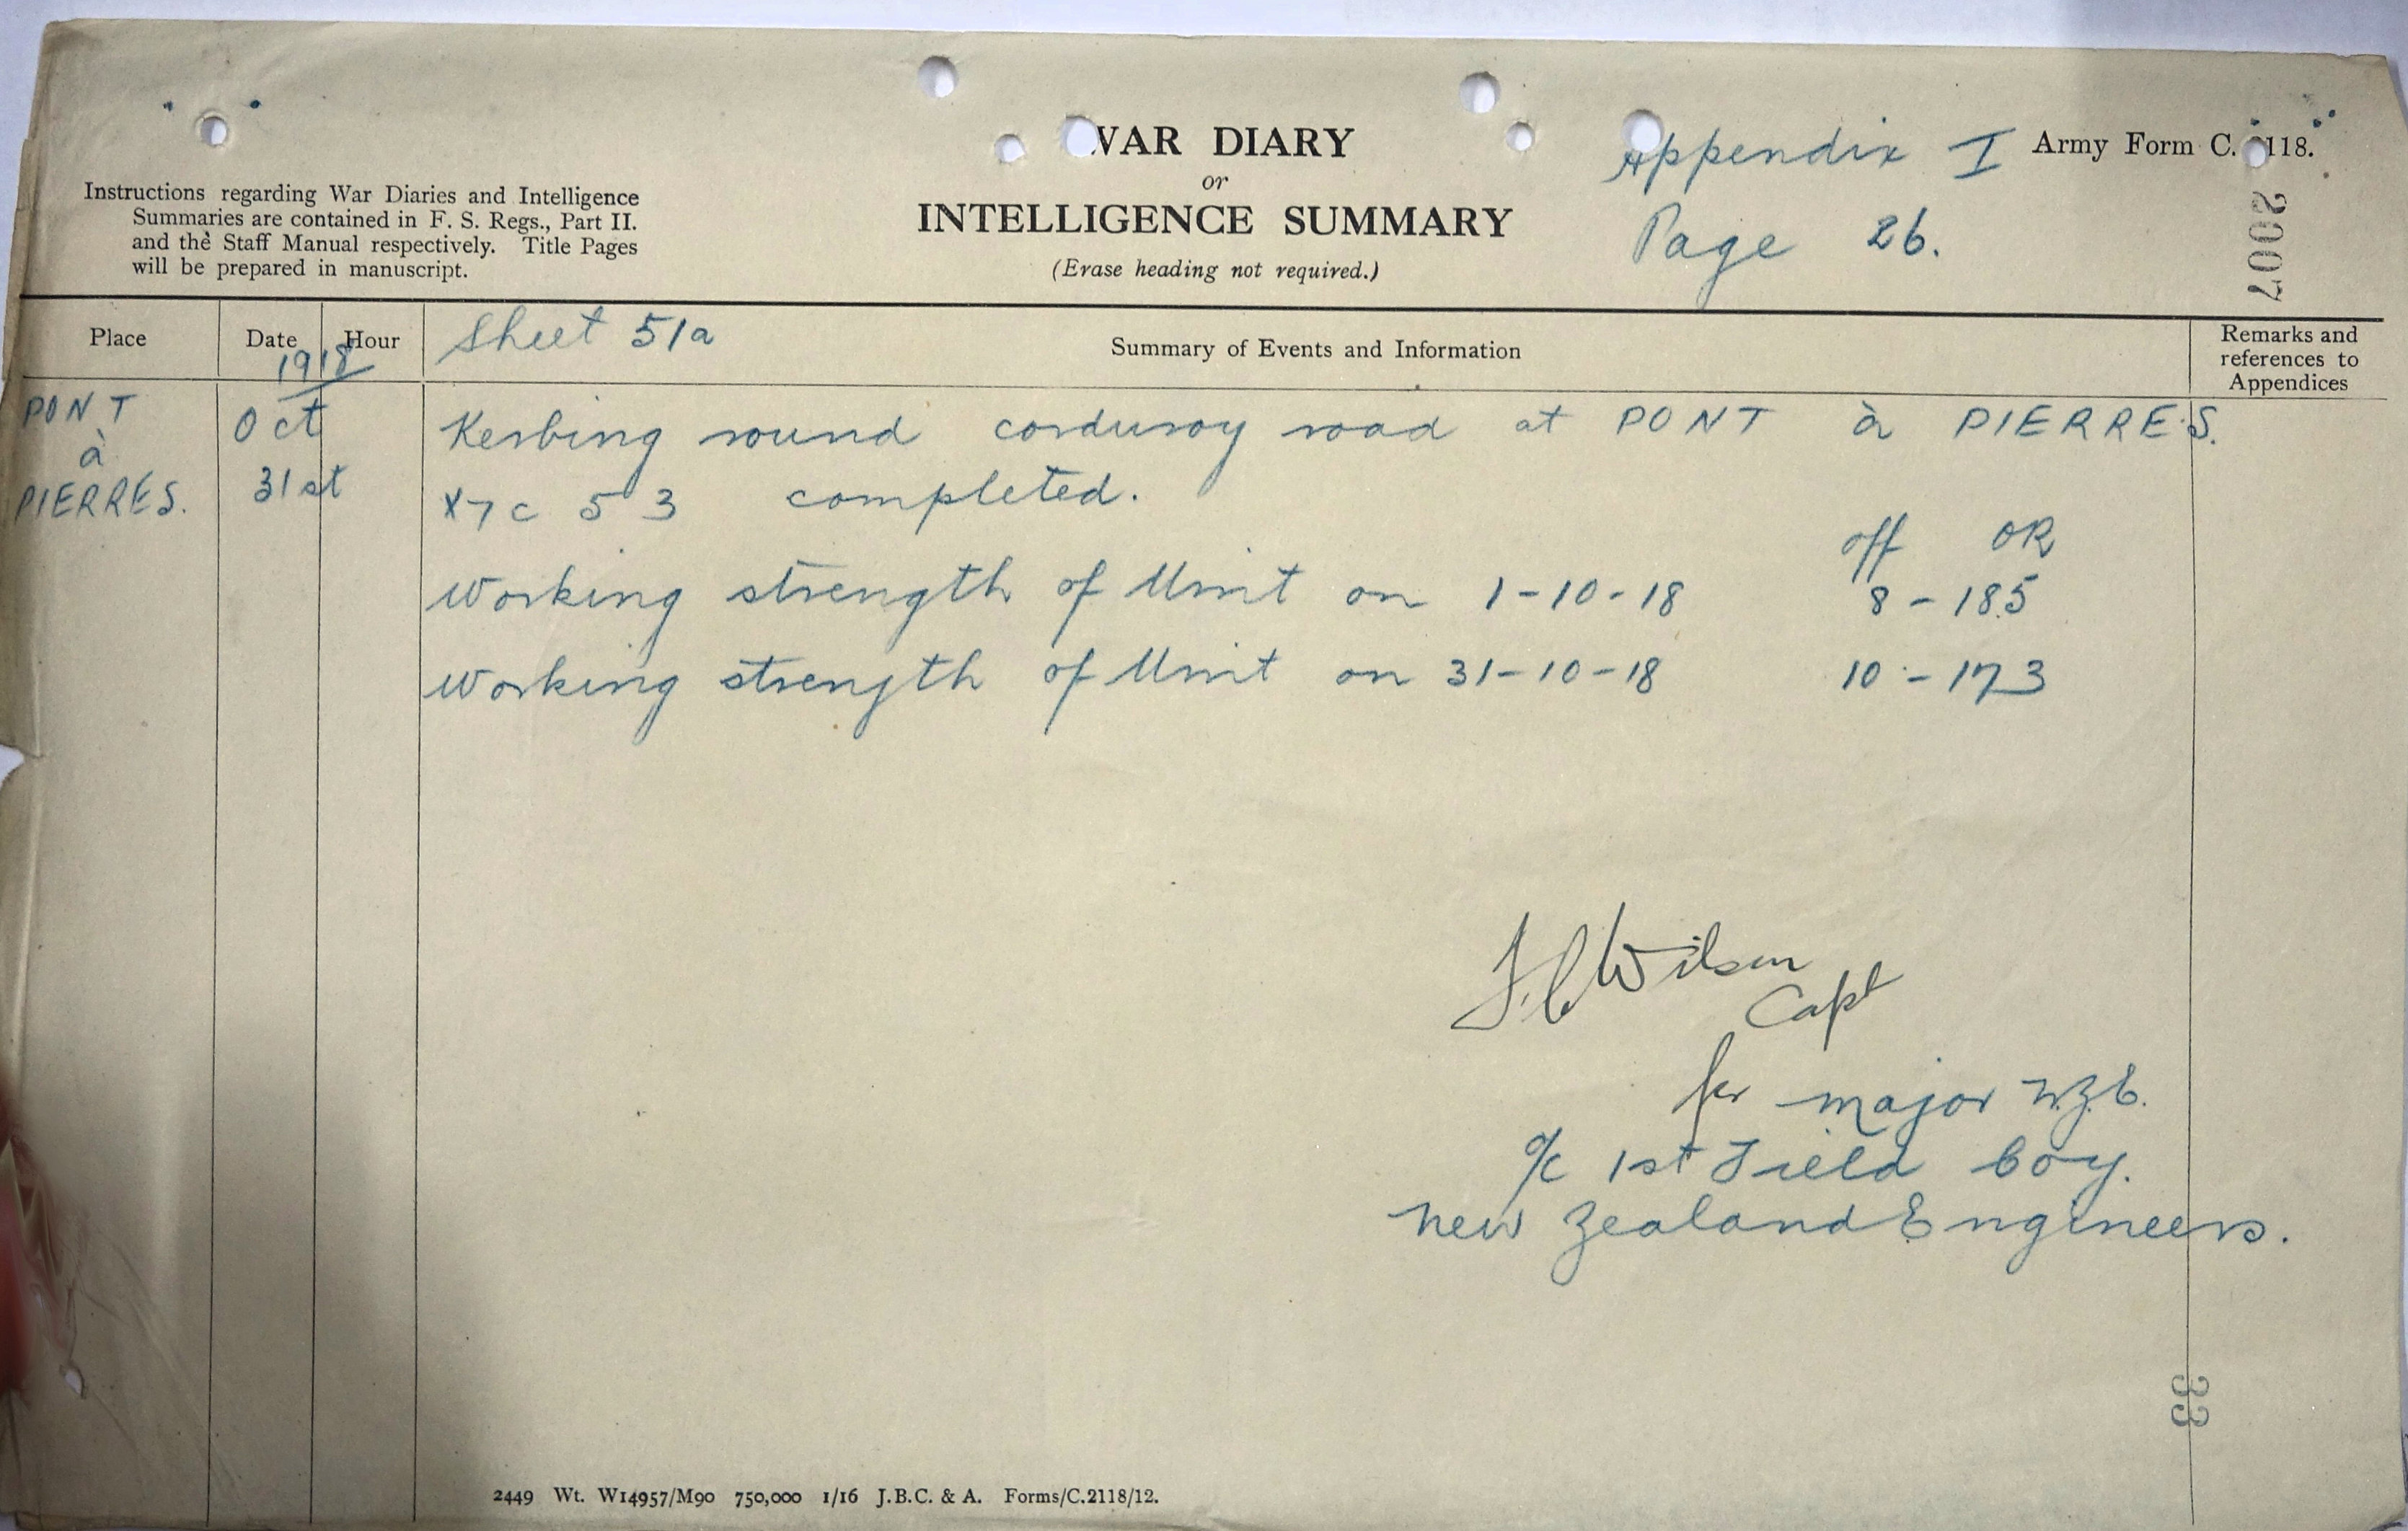 WAR DIARY
or
INTELLIGENCE SUMMARY
(Erase heading not required.)
Appendix I
Page 26.
Army Form C. 2118.
2007
Instructions regarding War Diaries and Intelligence
Summaries are contained in F. S. Regs., Part II.
and the Staff Manual respectively. Title Pages
will be prepared in manuscript.
Place
Date
Hour
1918
Sheet 51a
Summary of Events and Information
Remarks and
references to
Appendices
PONT
à
PIERRES.
Oct
31st
Kerbing round corduroy road at PONT à PIERRES.
X7c 5 3 completed.
off OR
Working strength of Unit on 1-10-18 8 - 185
Working strength of Unit on 31-10-18 10 - 173
Wilson
Capt
for major N.Z.E.
O/C 1st Field Coy.
New Zealand Engineers.
33
2449 Wt. W14957/M90 750,000 1/16 J.B.C. & A. Forms/C.2118/12.